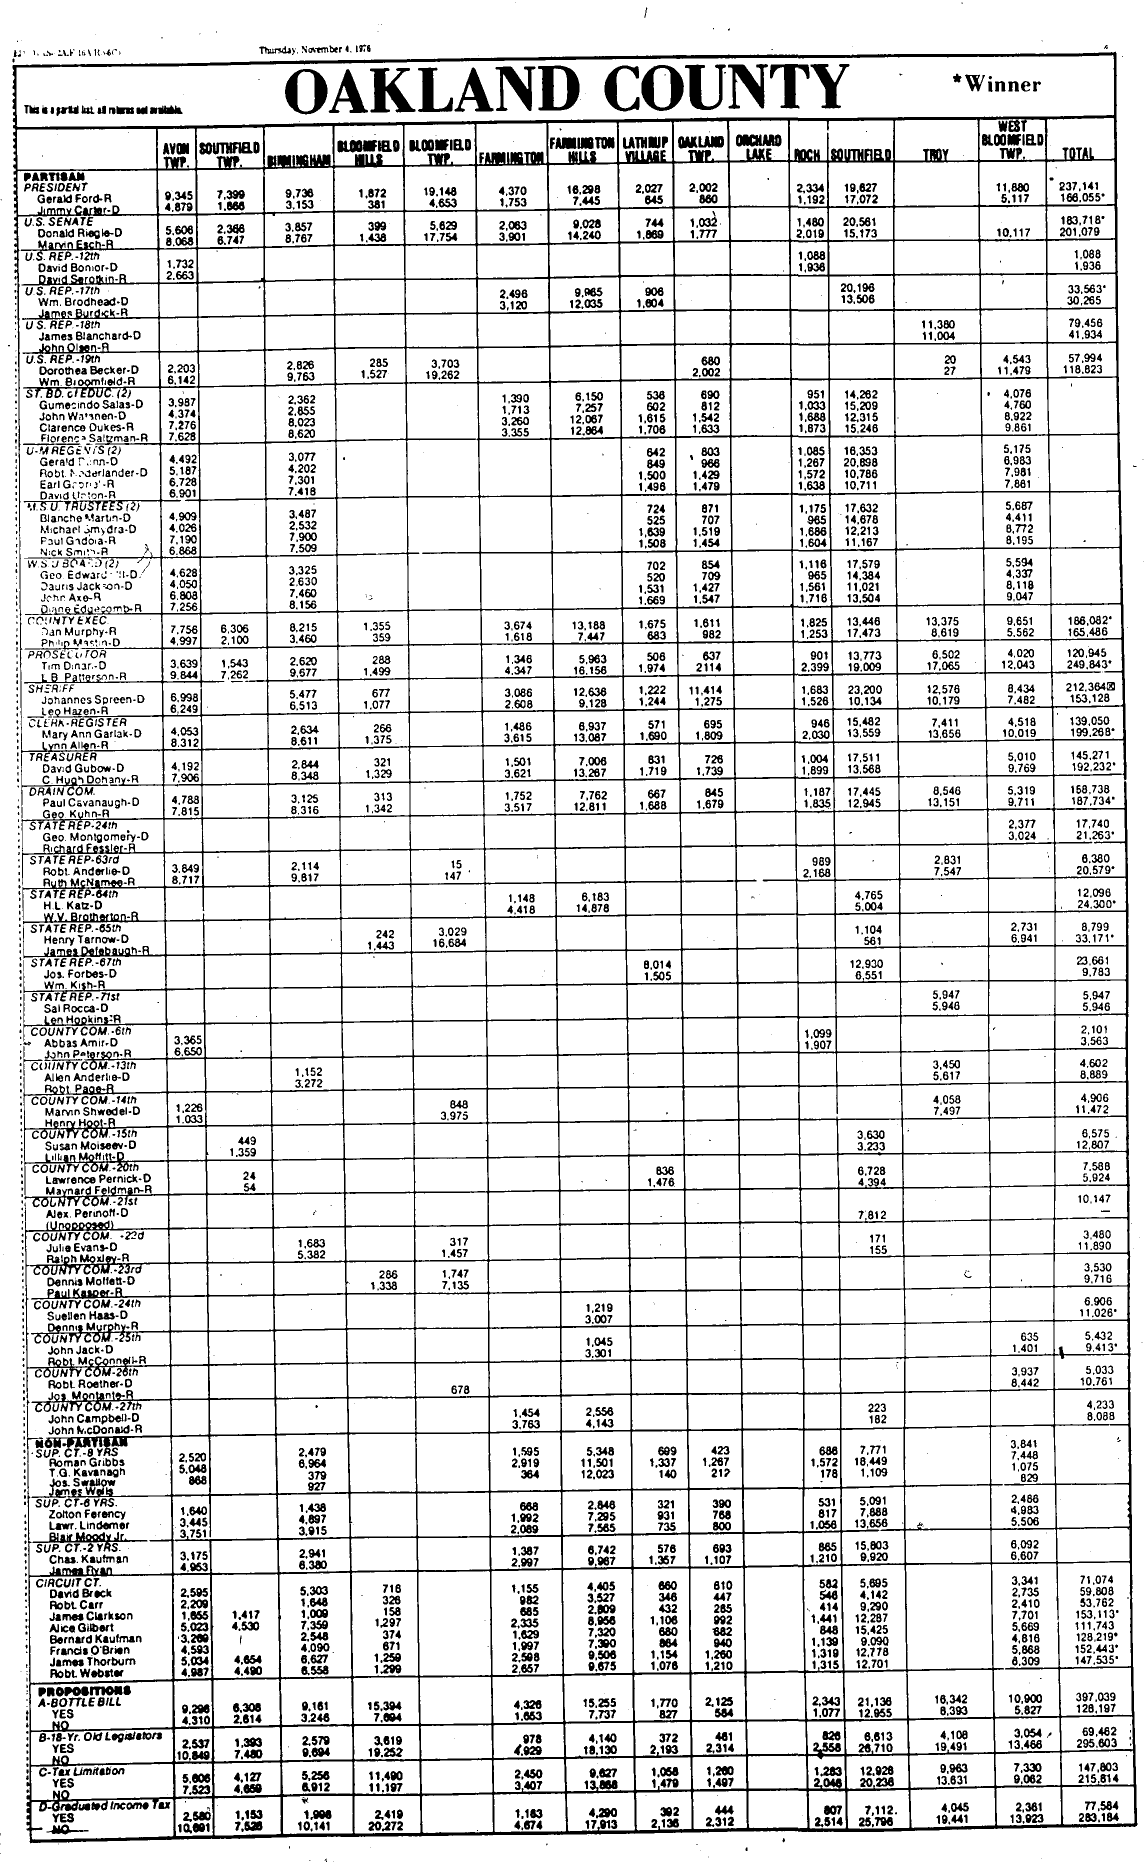 Thursday, November 4, 1976
OAKLAND COUNTY
*Winner
This is a partial list, all returns not available.
AVON TWP. SOUTHFIELD TWP. BIRMINGHAM BLOOMFIELD HILLS BLOOMFIELD TWP. FARMINGTON FARMINGTON HILLS LATHRUP VILLAGE OAKLAND TWP. ORCHARD LAKE ROCH SOUTHFIELD TROY WEST BLOOMFIELD TWP. TOTAL
PARTISAN
PRESIDENT
Gerald Ford-R 9,345 7,399 9,736 1,872 19,148 4,370 16,298 2,027 2,002 2,334 19,627 11,880 *237,141
Jimmy Carter-D 4,879 1,866 3,153 381 4,653 1,753 7,445 645 860 1,192 17,072 5,117 166,055*
U.S. SENATE
Donald Riegle-D 5,606 2,366 3,857 399 5,629 2,063 9,028 744 1,032 1,480 20,561 183,718*
Marvin Esch-R 8,068 6,747 8,767 1,438 17,754 3,901 14,240 1,869 1,777 2,019 15,173 10,117 201,079
U.S. REP.-12th
David Bonior-D 1,732 1,088 1,088
David Serotkin-R 2,663 1,936 1,936
U.S. REP.-17th
Wm. Brodhead-D 2,496 9,965 906 20,196 33,563*
James Burdick-R 3,120 12,035 1,604 13,506 30,265
U.S. REP.-18th
James Blanchard-D 11,380 79,456
John Olsen-R 11,004 41,934
U.S. REP.-19th
Dorothea Becker-D 2,203 2,826 285 3,703 680 20 4,543 57,994
Wm. Broomfield-R 6,142 9,763 1,527 19,262 2,002 27 11,479 118,823
ST. BD. of EDUC. (2)
Gumecindo Salas-D 3,987 2,362 1,390 6,150 536 690 951 14,262 4,076
John Watanen-D 4,374 2,855 1,713 7,257 602 812 1,033 15,209 4,760
Clarence Dukes-R 7,276 8,023 3,260 12,067 1,615 1,542 1,688 12,315 8,922
Florence Saltzman-R 7,628 8,620 3,355 12,864 1,706 1,633 1,873 15,246 9,861
U-M REGENTS (2)
Gerald Dunn-D 4,492 3,077 642 803 1,085 16,353 5,175
Robt. Nederlander-D 5,187 4,202 849 966 1,267 20,898 6,983
Earl Gabriel-R 6,728 7,301 1,500 1,429 1,572 10,786 7,981
David Upton-R 6,901 7,418 1,496 1,479 1,638 10,711 7,881
M.S.U. TRUSTEES (2)
Blanche Martin-D 4,909 3,487 724 871 1,175 17,632 5,687
Michael Smydra-D 4,026 2,532 525 707 965 14,678 4,411
Paul Gadola-R 7,190 7,900 1,639 1,519 1,686 12,213 8,772
Nick Smith-R 6,868 7,509 1,508 1,454 1,604 11,167 8,195
W.S.U BOARD (2)
Geo. Edward 4,628 3,325 702 854 1,116 17,579 5,594
Dauris Jackson-D 4,050 2,630 520 709 965 14,384 4,337
John Axe-R 6,808 7,460 1,531 1,427 1,561 11,021 8,118
Diane Edgecomb-R 7,256 8,156 1,669 1,547 1,716 13,504 9,047
COUNTY EXEC.
Dan Murphy-R 7,756 6,306 8,215 1,355 3,674 13,188 1,675 1,611 1,825 13,446 13,375 9,651 186,082*
Philip Mastin-D 4,997 2,100 3,460 359 1,618 7,447 683 982 1,253 17,473 8,619 5,562 165,486
PROSECUTOR
Tim Dinan-D 3,639 1,543 2,620 288 1,346 5,963 506 637 901 13,773 6,502 4,020 120,945
L.B. Patterson-R 9,844 7,262 9,677 1,499 4,347 16,156 1,974 2114 2,399 19,009 17,065 12,043 249,843*
SHERIFF
Johannes Spreen-D 6,998 5,477 677 3,086 12,636 1,222 11,414 1,683 23,200 12,576 8,434 212,364
Leo Hazen-R 6,249 6,513 1,077 2,608 9,128 1,244 1,275 1,526 10,134 10,179 7,482 153,128
CLERK-REGISTER
Mary Ann Garlak-D 4,053 2,634 266 1,486 6,937 571 695 946 15,482 7,411 4,518 139,050
Lynn Allen-R 8,312 8,611 1,375 3,615 13,087 1,690 1,809 2,030 13,559 13,656 10,019 199,268*
TREASURER
David Gubow-D 4,192 2,844 321 1,501 7,006 831 726 1,004 17,511 5,010 145,271
C. Hugh Dohany-R 7,906 8,348 1,329 3,621 13,267 1,719 1,739 1,899 13,568 9,769 192,232*
DRAIN COM.
Paul Cavanaugh-D 4,788 3,125 313 1,752 7,762 667 845 1,187 17,445 8,546 5,319 158,738
Geo. Kuhn-R 7,815 8,316 1,342 3,517 12,811 1,688 1,679 1,835 12,945 13,151 9,711 187,734*
STATE REP-24th
Geo. Montgomery-D 2,377 17,740
Richard Fessler-R 3,024 21,263*
STATE REP-63rd
Robt. Anderlie-D 3,849 2,114 15 989 2,831 6,380
Ruth McNamee-R 8,717 9,817 147 2,168 7,547 20,579*
STATE REP-64th
H.L. Katz-D 1,148 6,183 4,765 12,096
W.V. Brotherton-R 4,418 14,878 5,004 24,300*
STATE REP.-65th
Henry Tarnow-D 242 3,029 1,104 2,731 8,799
James Defebaugh-R 1,443 16,684 561 6,941 33,171*
STATE REP.-67th
Jos. Forbes-D 8,014 12,930 23,661
Wm. Kish-R 1,505 6,551 9,783
STATE REP.-71st
Sal Rocca-D 5,947 5,947
Len Hopkins-R 5,946 5,946
COUNTY COM.-6th
Abbas Amir-D 3,365 1,099 2,101
John Peterson-R 6,650 1,907 3,563
COUNTY COM.-13th
Allen Anderlie-D 1,152 3,450 4,602
Robt. Page-R 3,272 5,617 8,889
COUNTY COM.-14th
Marvin Shwedel-D 1,226 848 4,058 4,906
Henry Hoot-R 1,033 3,975 7,497 11,472
COUNTY COM.-15th
Susan Moiseev-D 449 3,630 6,575
Lillian Moffitt-D 1,359 3,233 12,807
COUNTY COM.-20th
Lawrence Pernick-D 24 836 6,728 7,588
Maynard Feldman-R 54 1,476 4,394 5,924
COUNTY COM.-21st
Alex. Perinoff-D 7,812 10,147
(Unopposed) —
COUNTY COM. -22d
Julie Evans-D 1,683 317 171 3,480
Ralph Moxley-R 5,382 1,457 155 11,890
COUNTY COM.-23rd
Dennis Moffett-D 286 1,747 3,530
Paul Kasper-R 1,338 7,135 9,716
COUNTY COM.-24th
Suellen Haas-D 1,219 6,906
Dennis Murphy-R 3,007 11,026*
COUNTY COM.-25th
John Jack-D 1,045 635 5,432
Robt. McConnell-R 3,301 1,401 9,413*
COUNTY COM-26th
Robt. Roether-D 3,937 5,033
Jos. Montante-R 678 8,442 10,761
COUNTY COM.-27th
John Campbell-D 1,454 2,556 223 4,233
John McDonald-R 3,763 4,143 182 8,088
NON-PARTISAN
SUP. CT.-8 YRS
Roman Gribbs 2,520 2,479 1,595 5,348 699 423 686 7,771 3,841
T.G. Kavanagh 5,048 6,964 2,919 11,501 1,337 1,267 1,572 18,449 7,448
Jos. Swallow 868 379 364 12,023 140 212 178 1,109 1,075
James Wells 927 829
SUP. CT-6 YRS.
Zolton Ferency 1,640 1,438 668 2,846 321 390 531 5,091 2,486
Lawr. Lindemer 3,445 4,897 1,992 7,295 931 768 817 7,888 4,983
Blair Moody Jr. 3,751 3,915 2,089 7,565 735 800 1,056 13,656 5,506
SUP. CT.-2 YRS.
Chas. Kaufman 3,175 2,941 1,387 6,742 576 693 865 15,803 6,092
James Ryan 4,953 6,380 2,997 9,967 1,357 1,107 1,210 9,920 6,607
CIRCUIT CT.
David Breck 2,595 5,303 716 1,155 4,405 660 610 582 5,695 3,341 71,074
Robt. Carr 2,209 1,648 326 982 3,527 346 447 546 4,142 2,735 59,808
James Clarkson 1,655 1,417 1,009 158 685 2,809 432 285 414 9,290 2,410 53,762
Alice Gilbert 5,023 4,530 7,359 1,297 2,335 8,956 1,106 992 1,441 12,287 7,701 153,113*
Bernard Kaufman 3,269 2,548 374 1,629 7,320 680 682 848 15,425 5,669 111,743
Francis O'Brien 4,593 4,090 671 1,997 7,390 864 940 1,139 9,090 4,816 128,219*
James Thorburn 5,034 4,654 6,627 1,259 2,598 9,506 1,154 1,260 1,319 12,778 5,868 152,443*
Robt. Webster 4,987 4,490 6,558 1,299 2,657 9,675 1,076 1,210 1,315 12,701 6,309 147,535*
PROPOSITIONS
A-BOTTLE BILL
YES 9,296 6,306 9,161 15,394 4,326 15,255 1,770 2,125 2,343 21,136 16,342 10,900 397,039
NO 4,310 2,614 3,246 7,694 1,653 7,737 827 584 1,077 12,955 8,393 5,827 128,197
B-18-Yr. Old Legislators
YES 2,537 1,393 2,579 3,619 978 4,140 372 461 826 6,613 4,108 3,054 69,462
NO 10,849 7,480 9,694 19,252 4,929 18,130 2,193 2,314 2,558 26,710 19,491 13,466 295,603
C-Tax Limitation
YES 5,606 4,127 5,256 11,490 2,450 9,627 1,058 1,260 1,283 12,928 9,963 7,330 147,803
NO 7,523 4,659 6,912 11,197 3,407 13,868 1,479 1,497 2,046 20,236 13,631 9,062 215,614
D-Graduated Income Tax
YES 2,580 1,153 1,996 2,419 1,163 4,290 392 444 807 7,112 4,045 2,361 77,584
NO 10,691 7,526 10,141 20,272 4,674 17,913 2,136 2,312 2,514 25,796 19,441 13,923 283,184